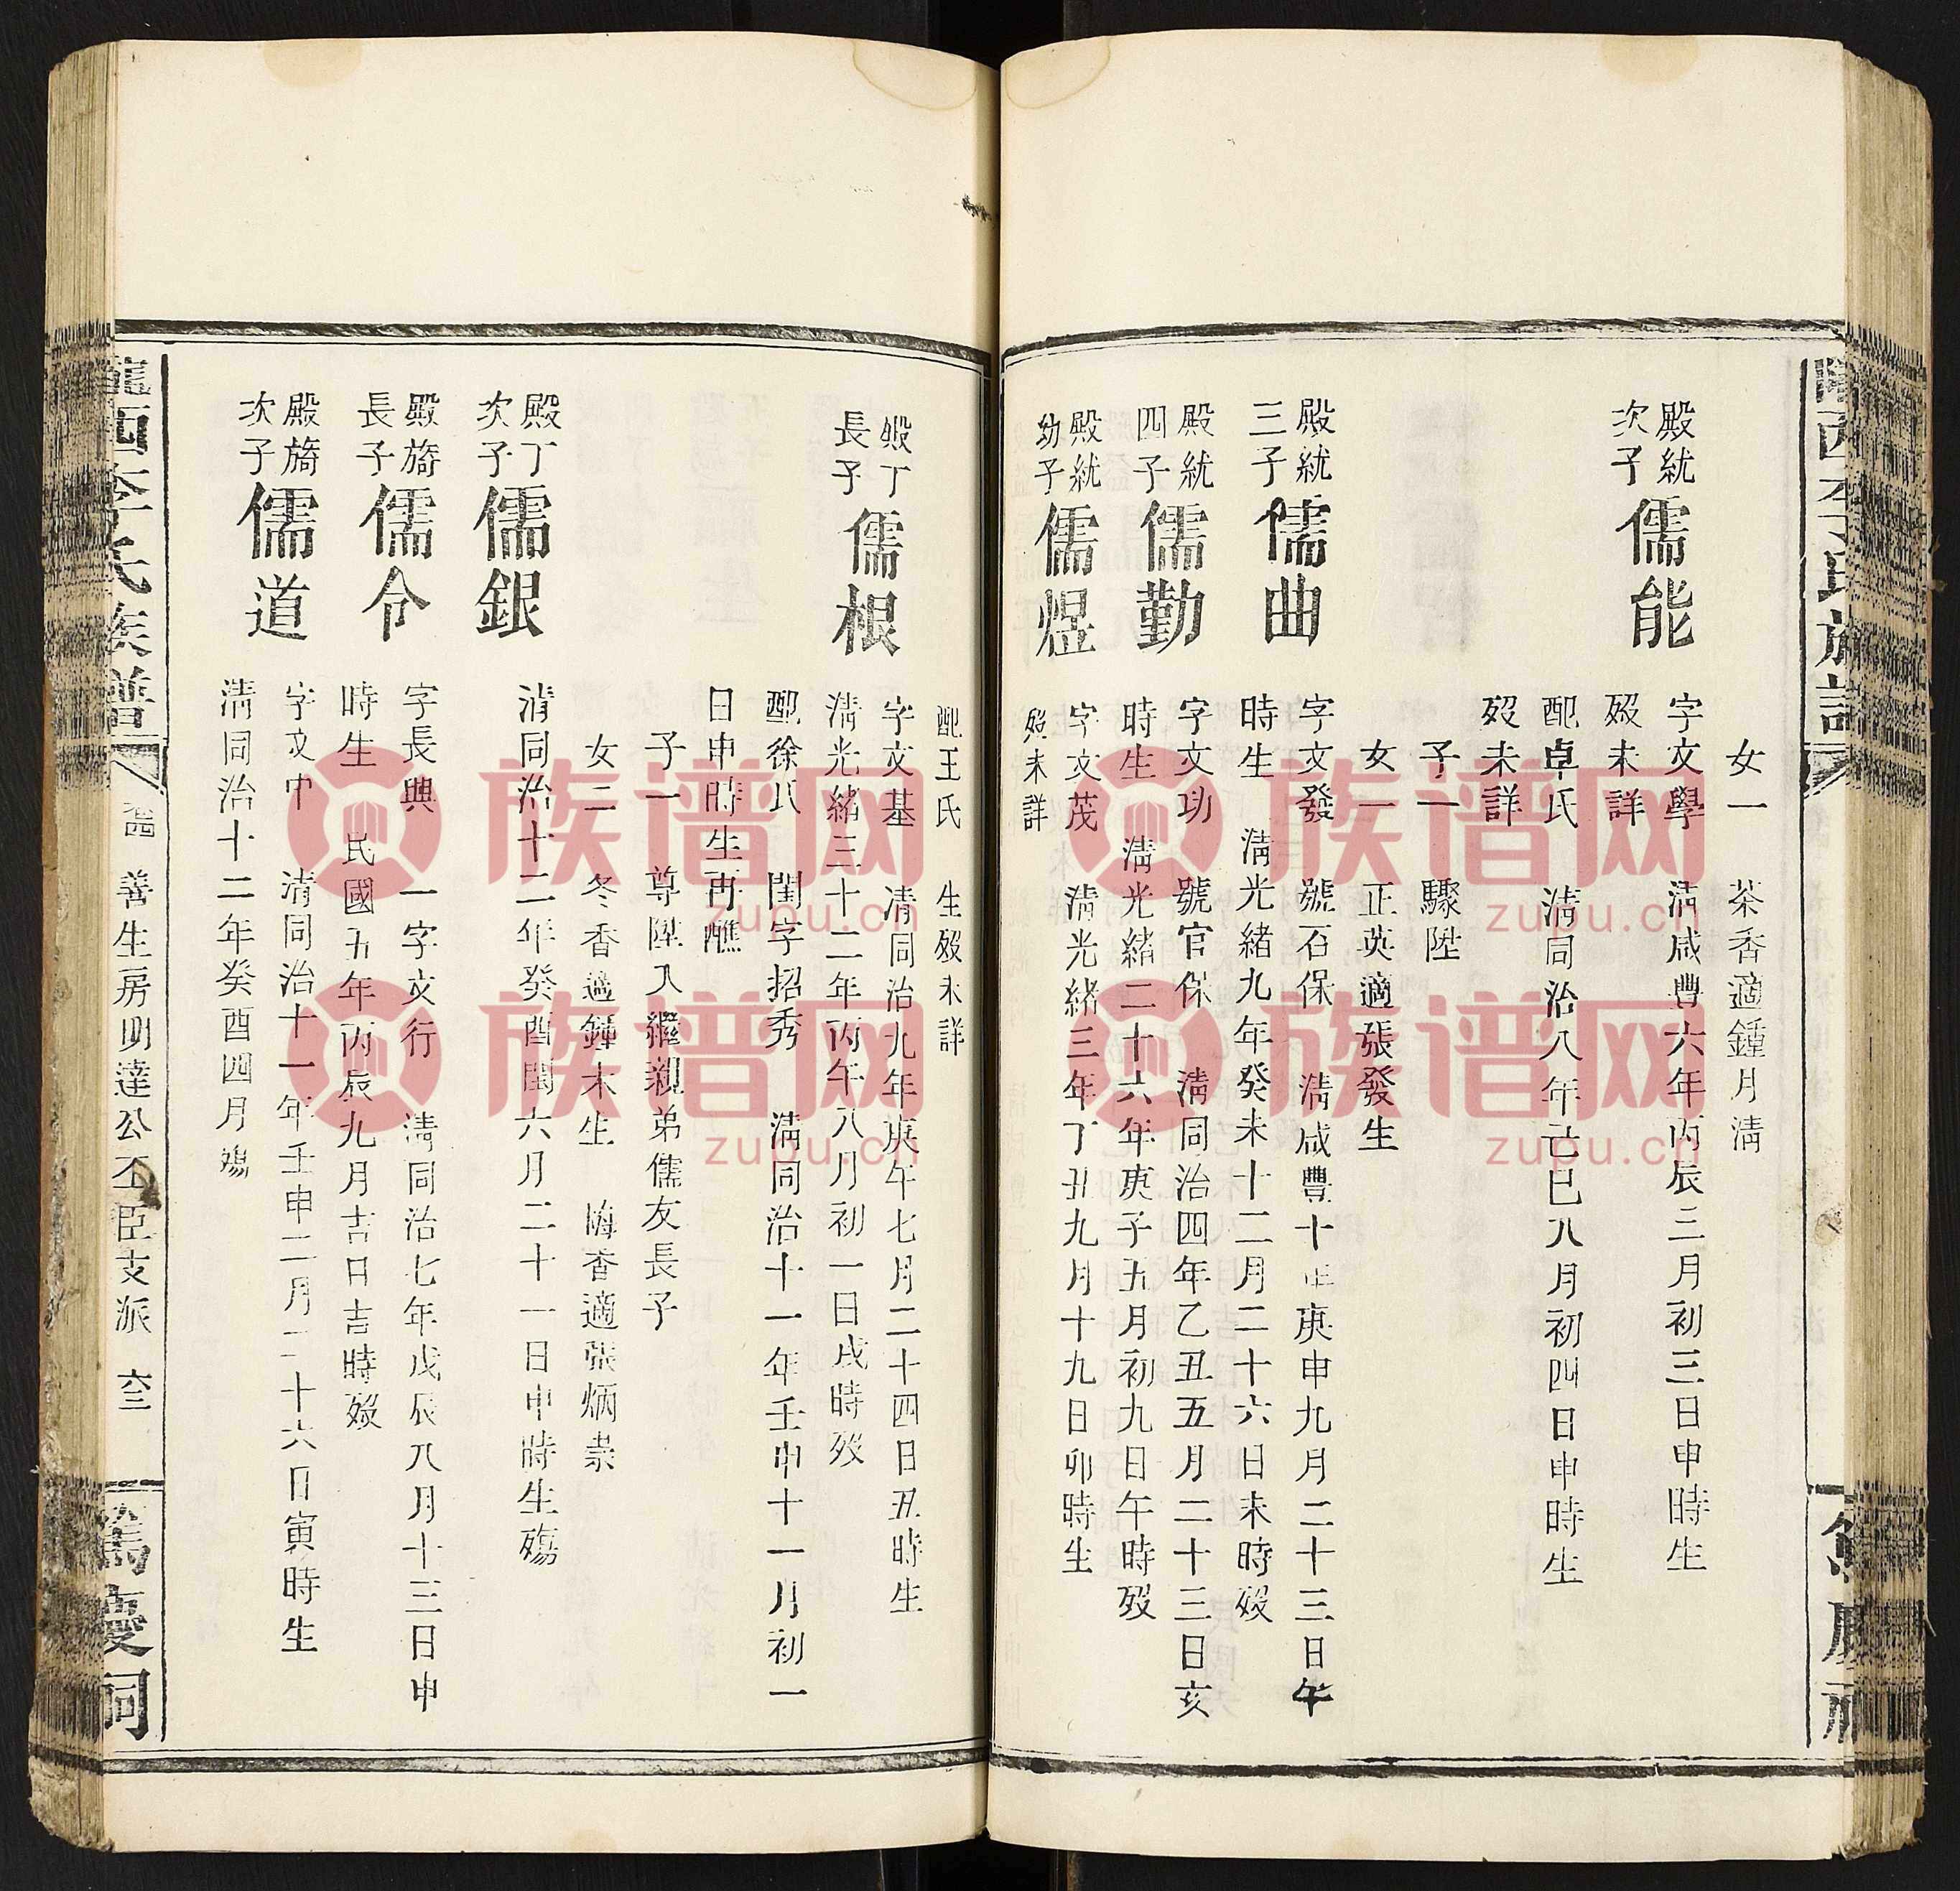 女一　茶香適鍾月清
殿紌
次子
儒能
字文學　清咸豊六年丙辰三月初三日申時生
歿未詳
配卓氏　清同治八年己巳八月初四日申時生
歿未詳
子一　驟陞
女一　正英適張發生
殿紌
三子
儒曲
字文發　號石保　清咸豐十年庚申九月二十三日午
時生　清光緒九年癸未十二月二十六日未時歿
殿紌
四子
儒勤
字文功　號官保　清同治四年乙丑五月二十三日亥
時生　清光緒二十六年庚子五月初九日午時歿
殿紌
幼子
儒煜
字文茂　清光緒三年丁丑九月十九日卯時生
歿未詳
配王氏　生歿未詳
殿丁
長子
儒根
字文基　清同治九年庚午七月二十四日丑時生
清光緒三十二年丙午八月初一日戌時歿
配徐氏　閨字招秀　清同治十一年壬申十一月初一
日申時生再醮
子一　尊陞入繼親弟儒友長子
女二　冬香適鍾木生　梅香適張炳崇
殿丁
次子
儒銀
清同治十二年癸酉閏六月二十一日申時生殤
殿旖
長子
儒令
字長興　一字文行　清同治七年戊辰八月十三日申
時生　民國五年丙辰九月吉日吉時歿
殿旖
次子
儒道
字文中　清同治十一年壬申二月二十六日寅時生
清同治十二年癸酉四月殤
隴西李氏族譜　善生房明達公丕臣支派　六三　篤慶祠
族谱网
zupu.cn
族谱网
zupu.cn
族谱网
zupu.cn
族谱网
zupu.cn